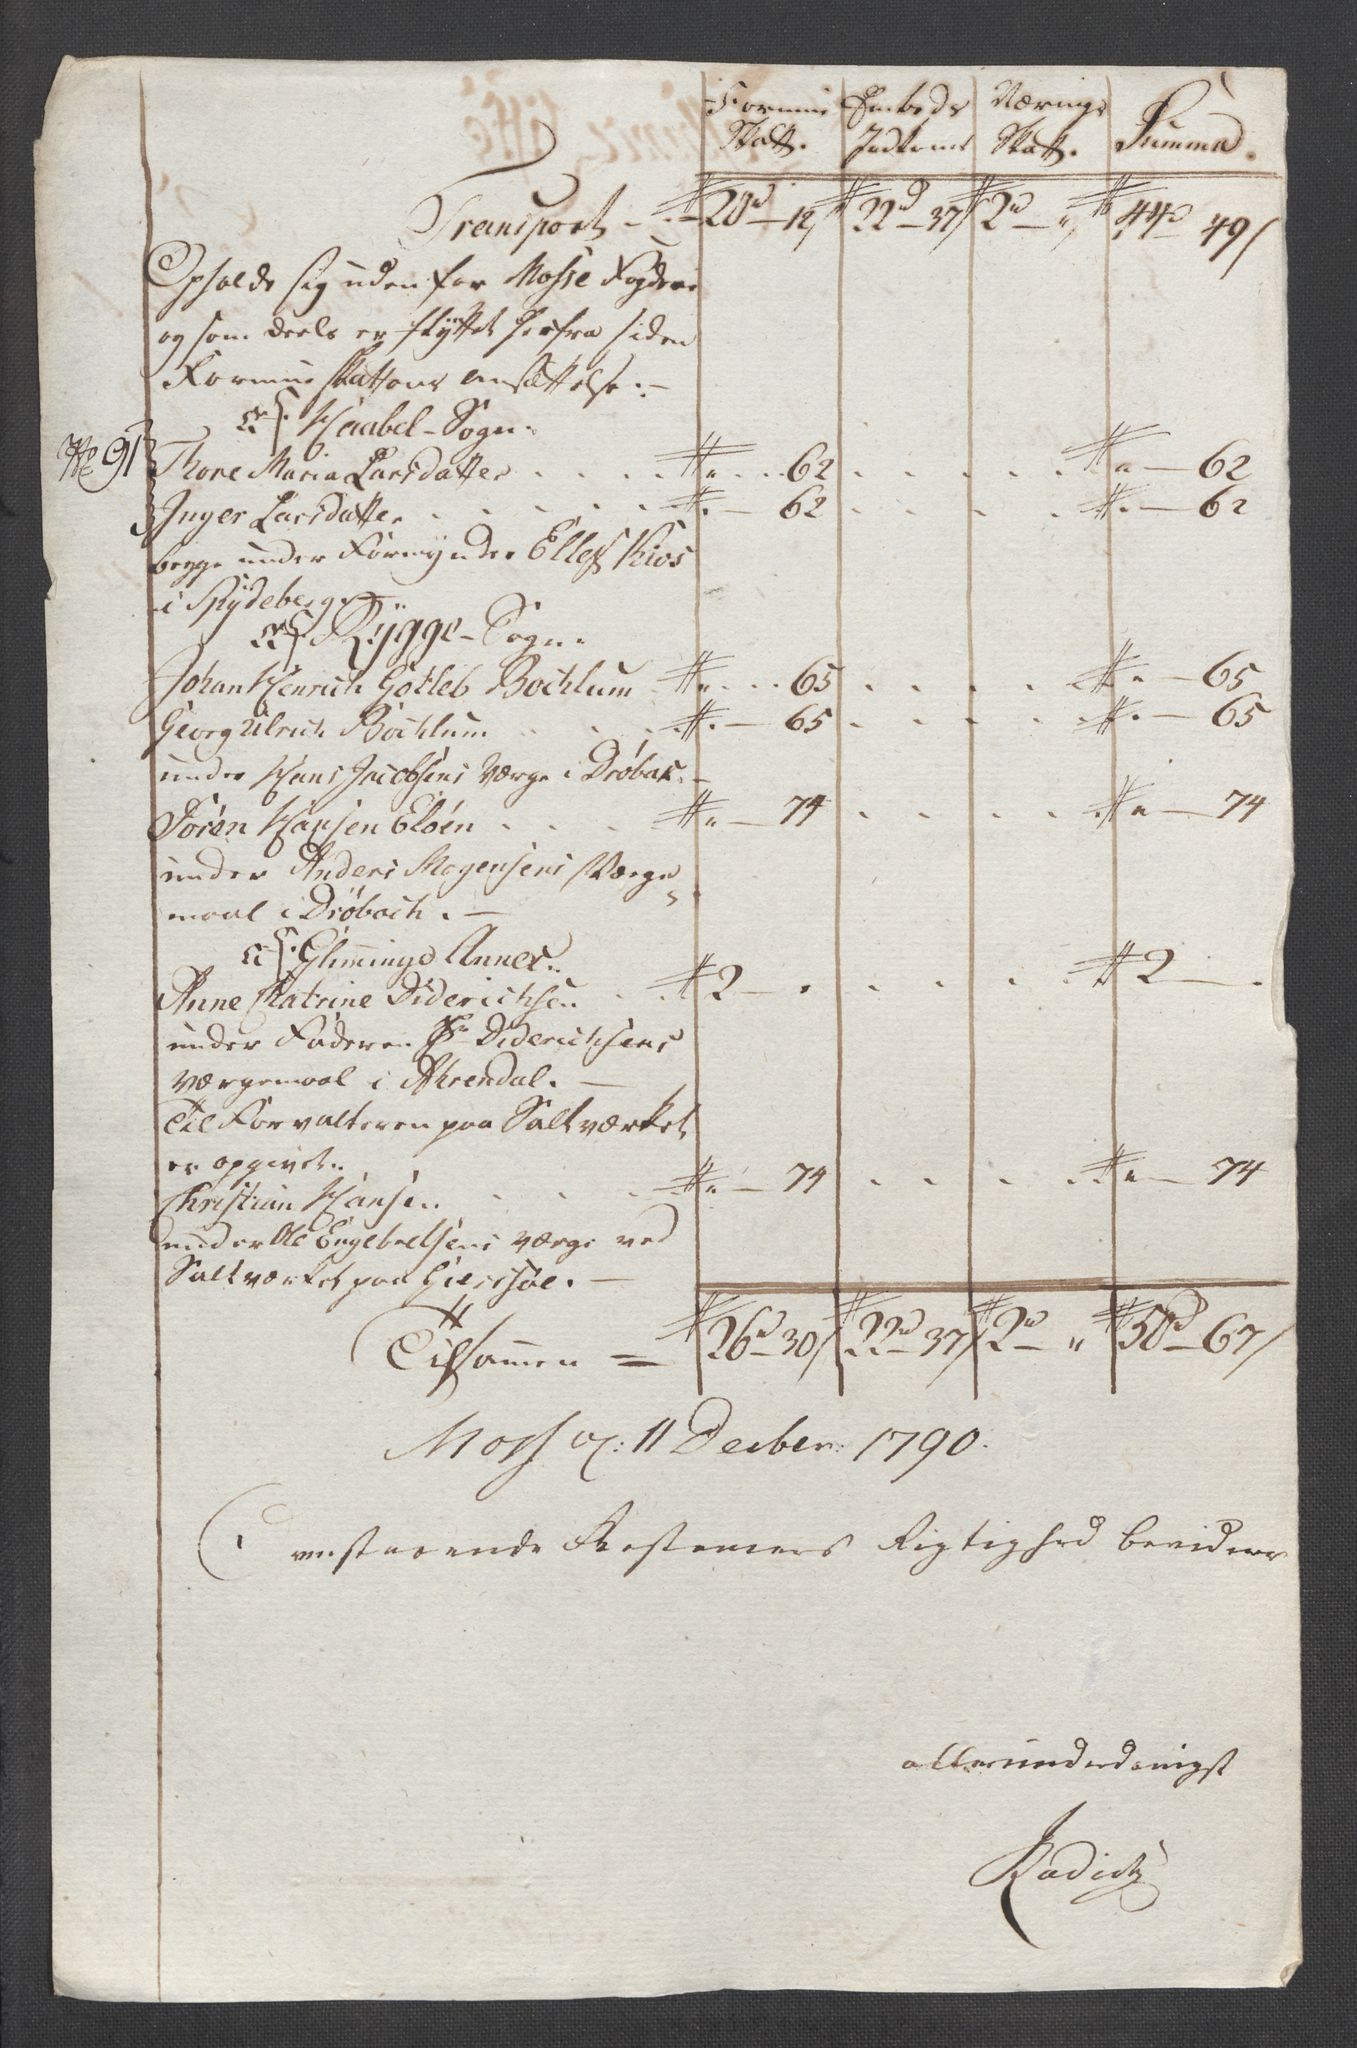 Formue Embeds Nærings Summa.
Skatt. Indkoms Skatt.
Transport - 20d - 12/ 22d - 37/ 2d - " 44d - 49/
Opholde sig uden for Mosse Fogderie
og som deels er flÿttet herfra siden
Formue Skattens ansættelse. -
af Haabel-Sogn.
No 91 Thore Maria Larsdatter . . . " . . 62 . . . . . " - 62
Inger Larsdatter . . . . . " - 62 . . . . " - 62
begge under Formynder Ellef Kios
i Spÿdeberg.
af Rÿgge-Sogn.
Johan Henrich Gotleb Bochlum " . . 65 . . . . " - 65
Georg Ulrich Bochlum . . . " - 65 . . . . " - 65
under Hans Jacobsens Værge i Drøbak. -
Søren Hansen Eløen . . . . " - 74 . . . . " - 74
under Anders Mogensens Værge-
maal i Drøbach. -
af Annex.
Anne Catrine Diderichsen . . 2 - . . . . . 2 - .
under Faderen Diderichsens
Værgemaal i Ahrendal. -
Til Forvalteren paa Saltværket
er opgivet.
Christian Hansen . . . . " - 74 . . . . " - 74
under Ole Engebretsens værge ved
Saltværket paa
Tilsammen = 26d - 30/ 22d 37/ 2d - " 50d - 67/
Moss d: 11 Decber: 1790.
Ovenstaaende Restances Rigtighed bevidner
allerunderdanigst
Radich